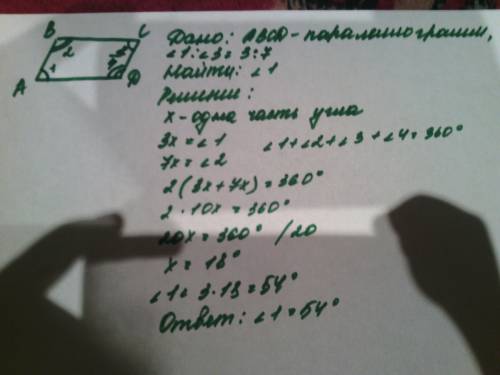 B C
2 3
1
A D
Дано: ABCD - параллелограмм,
∠1:∠3 = 3:7
Найти: ∠1
Решение:
x - одна часть угла
3x = ∠1 ∠1+∠2+∠3+∠4=360°
7x = ∠2
2(3x+7x)=360°
2·10x=360°
20x=360° /20
x = 18°
∠1 = 3·18=54°
Ответ: ∠1=54°